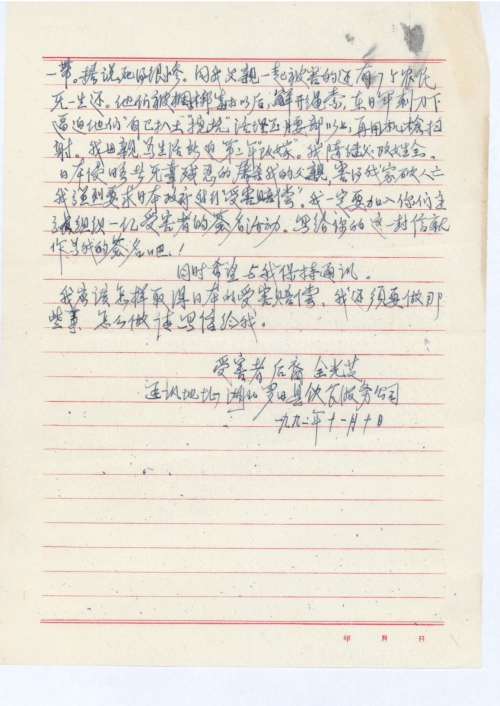 一带。据说死得很惨。同我父亲一起被害的还有75名农民
无一生还。他们被捆绑毒打以后,解开绳索,在日军刺刀下
逼迫他们"自已扒土""挖坑"活埋至腰部以上,再用机枪扫
射。我母亲写生活所迫第二年"改嫁"。我随继父改姓全。
日本侵略者 残忍的屠杀我的父亲,害得我家破人亡
我强烈要求日本政府给我"受害赔偿"。我一定要加入你们主
组织一亿受害者的签名活动。写给你的这一封信就
作为我的签名吧!
同时希望与我保持通讯。
我应该怎样取得日本的受害赔偿,我还须要做那
些事 怎么做请写信给我。
受害者后裔 全光
通讯地址,湖北罗田县饮食服务公司
一九九二年十一月十日
年 月 日